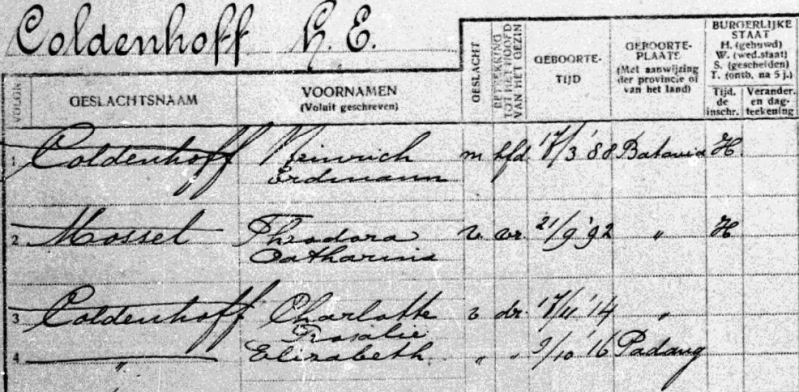 Coldenhoff H. E.
VOLGN. GESLACHTSNAAM VOORNAMEN (Voluit geschreven) GESLACHT BETREKKING TOT HET HOOFD VAN HET GEZIN GEBOORTE-TIJD GEBOORTE-PLAATS (Met aanwijzing der provincie of van het land) BURGERLIJKE STAAT H. (gehuwd) W. (wed.staat) S. (gescheiden) T. (ontb. na 5 j.) Tijd. de inschr. Verander. en dag-teekening
1 Coldenhoff Heinrich m hfd 17/3 '88 Batavia H
Erdmann
2 Mossel Theodora v vr 21/9 '92 " H
Catharina
3 Coldenhoff Charlotte v dr 17/11 '14 "
Rosalie
4 " Elisabeth " " 9/10 '16 Padang